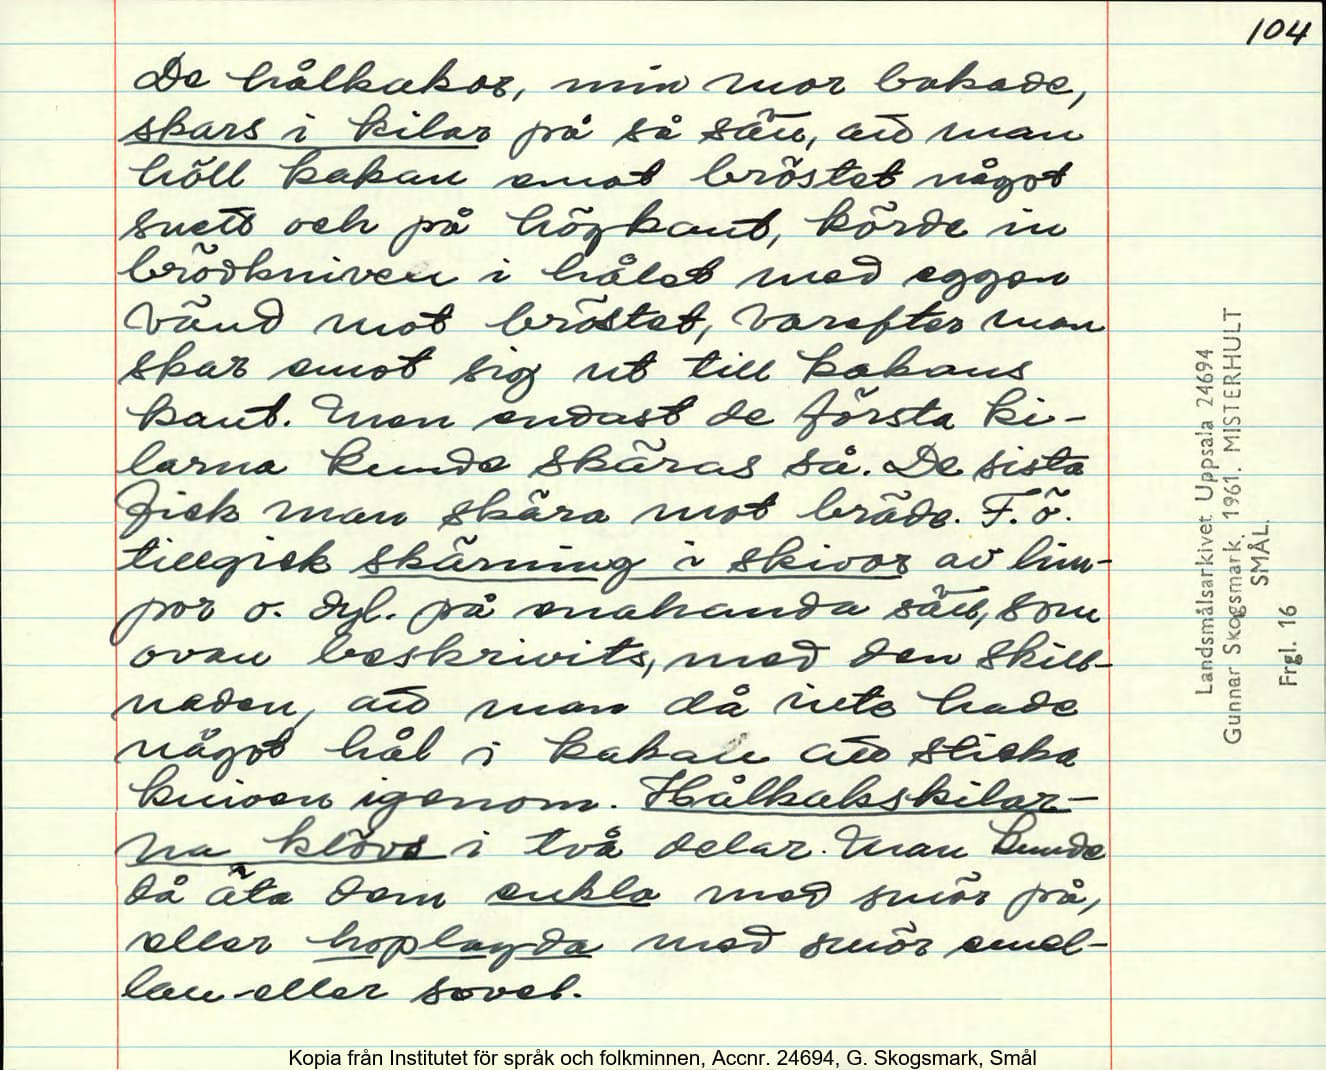 104
De hålkakor, min mor bakade,
skars i kilar på så sätt, att man
höll kakan emot bröstet något
snett och på högkant, körde in
brödkniven i hålet med eggen
vänd mot bröstet, varefter man
skar emot sig ut till kakans
kant. Men endast de första ki-
larna kunde skäras så. De sista
fick man skära mot bräde. F. ö.
tillgick skärning i skivor av lim-
por o. dyl. på enahanda sätt, som
ovan beskrivits, med den skill-
naden, att man då inte hade
något hål i kakan att sticka
kniven igenom. Hålkakskilar-
na klövs i två delar. Man kunde
då äta dem enkla med smör på,
eller hoplagda med smör emel-
lan eller sovel.
Landsmålsarkivet Uppsala 24694
Gunnar Skogsmark. 1961. MISTERHULT
SMÅL.
Frgl. 16
Kopia från Institutet för språk och folkminnen, Accnr. 24694, G. Skogsmark, Smål